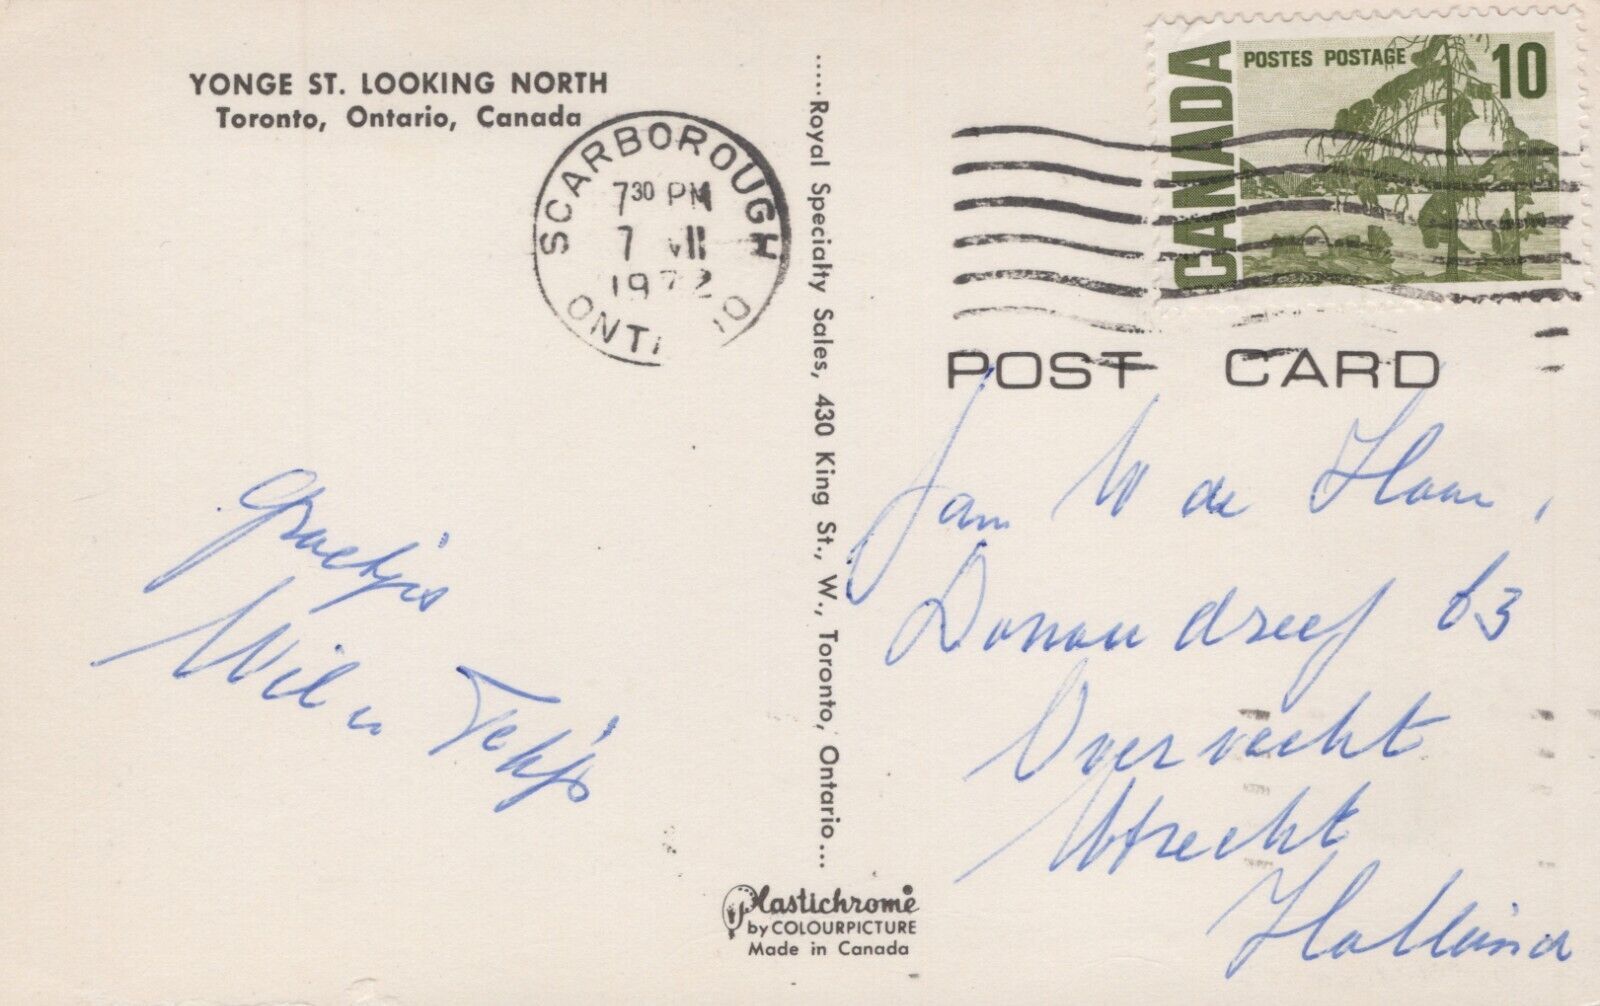 YONGE ST. LOOKING NORTH
Toronto, Ontario, Canada
SCARBOROUGH
7 30 PM
7 VII
1972
ONT IO
CANADA
POSTES POSTAGE
10
POST CARD
Groetjes
Wil
Jan W de Haan,
Donaudreef 63
Overvecht
Utrecht
Holland
.....Royal Specialty Sales, 430 King St., W., Toronto, Ontario...
Plastichrome
by COLOURPICTURE
Made in Canada